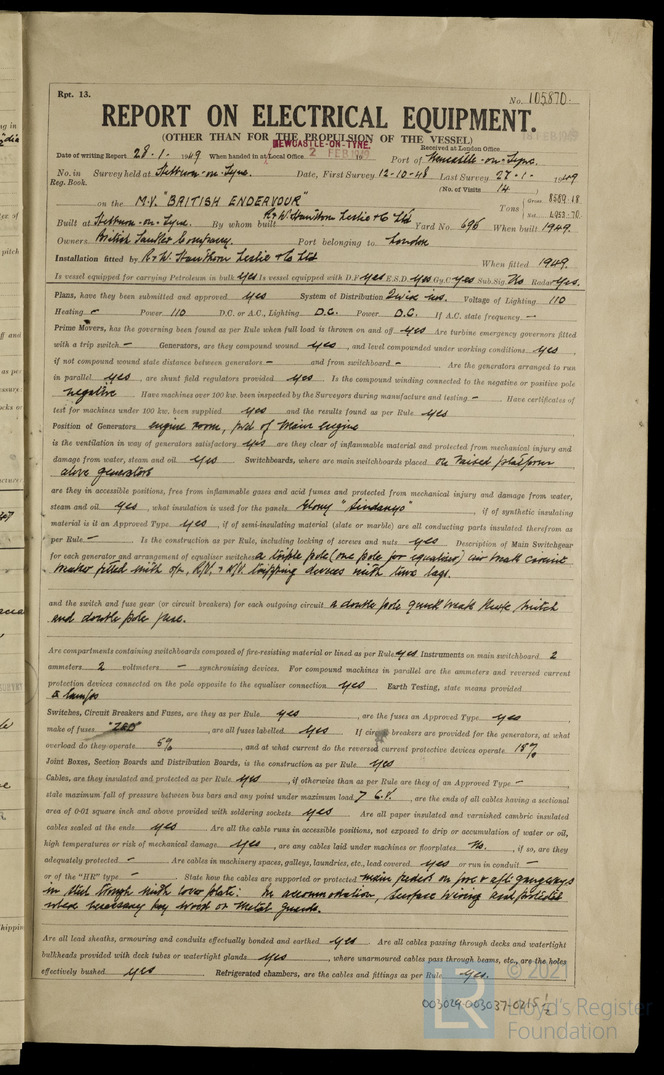 Rpt. 13.
No. 105870.
REPORT ON ELECTRICAL EQUIPMENT.
(OTHER THAN FOR THE PROPULSION OF THE VESSEL)
NEWCASTLE-ON-TYNE.
Received at London Office 18 FEB 1949
Date of writing Report 28.1. 1949 When handed in at Local Office 2 FEB 1949 19 Port of Newcastle-on-Tyne.
No. in Survey held at Hebburn-on-Tyne. Date, First Survey 12-10-48 Last Survey 27-1- 1949
Reg. Book. (No. of Visits 14 )
on the M.V. "BRITISH ENDEAVOUR" Tons Gross 8589.18
Net
Built at Hebburn-on-Tyne. By whom built R. & W. Hawthorn Leslie & Co Ltd Yard No. 696 When built 1949.
Owners British Tanker Company. Port belonging to London
Installation fitted by R. & W. Hawthorn Leslie & Co Ltd When fitted 1949.
Is vessel equipped for carrying Petroleum in bulk yes Is vessel equipped with D.F. yes E.S.D. yes Gy.C. yes Sub.Sig. No Radar yes.
Plans, have they been submitted and approved yes System of Distribution 2 wire ins. Voltage of Lighting 110
Heating - Power 110 D.C. or A.C., Lighting D.C. Power D.C. If A.C. state frequency -
Prime Movers, has the governing been found as per Rule when full load is thrown on and off yes Are turbine emergency governors fitted
with a trip switch - Generators, are they compound wound yes, and level compounded under working conditions yes,
if not compound wound state distance between generators - and from switchboard - Are the generators arranged to run
in parallel yes, are shunt field regulators provided yes Is the compound winding connected to the negative or positive pole
negative Have machines over 100 kw. been inspected by the Surveyors during manufacture and testing - Have certificates of
test for machines under 100 kw. been supplied yes and the results found as per Rule yes
Position of Generators engine room, fwd of main engine
is the ventilation in way of generators satisfactory yes are they clear of inflammable material and protected from mechanical injury and
damage from water, steam and oil yes Switchboards, where are main switchboards placed on raised platform
above generators
are they in accessible positions, free from inflammable gases and acid fumes and protected from mechanical injury and damage from water,
steam and oil yes, what insulation is used for the panels Ebony "Sindanyo" if of synthetic insulating
material is it an Approved Type yes, if of semi-insulating material (slate or marble) are all conducting parts insulated therefrom as
per Rule - Is the construction as per Rule, including locking of screws and nuts yes Description of Main Switchgear
for each generator and arrangement of equaliser switches a triple pole (one pole for equaliser) air break circuit
breaker fitted with o/L, R/V. & N/V. tripping devices with time lags.
and the switch and fuse gear (or circuit breakers) for each outgoing circuit a double pole quick break knife switch
and double pole fuse.
Are compartments containing switchboards composed of fire-resisting material or lined as per Rule yes Instruments on main switchboard 2
ammeters 2 voltmeters - synchronising devices. For compound machines in parallel are the ammeters and reversed current
protection devices connected on the pole opposite to the equaliser connection yes Earth Testing, state means provided
2 lamps
Switches, Circuit Breakers and Fuses, are they as per Rule yes, are the fuses an Approved Type yes
make of fuses "ZED", are all fuses labelled yes If circuit breakers are provided for the generators, at what
overload do they operate 5%, and at what current do the reversed current protective devices operate 15%
Joint Boxes, Section Boards and Distribution Boards, is the construction as per Rule yes
Cables, are they insulated and protected as per Rule yes, if otherwise than as per Rule are they of an Approved Type -
state maximum fall of pressure between bus bars and any point under maximum load > 6.V., are the ends of all cables having a sectional
area of 0·01 square inch and above provided with soldering sockets yes Are all paper insulated and varnished cambric insulated
cables sealed at the ends yes Are all the cable runs in accessible positions, not exposed to drip or accumulation of water or oil,
high temperatures or risk of mechanical damage yes, are any cables laid under machines or floorplates No., if so, are they
adequately protected - Are cables in machinery spaces, galleys, laundries, etc., lead covered yes or run in conduit -
or of the "HR" type - State how the cables are supported or protected main feeders on fore & aft gangways
in steel trough with cover plate: In accommodation, surface wiring and protected
where necessary by wood or metal guards.
Are all lead sheaths, armouring and conduits effectually bonded and earthed yes Are all cables passing through decks and watertight
bulkheads provided with deck tubes or watertight glands yes, where unarmoured cables pass through beams, etc., are the holes
effectively bushed yes Refrigerated chambers, are the cables and fittings as per Rule yes.
003029-003037-0215 1/2
© 2021
LR
Lloyd's Register
Foundation